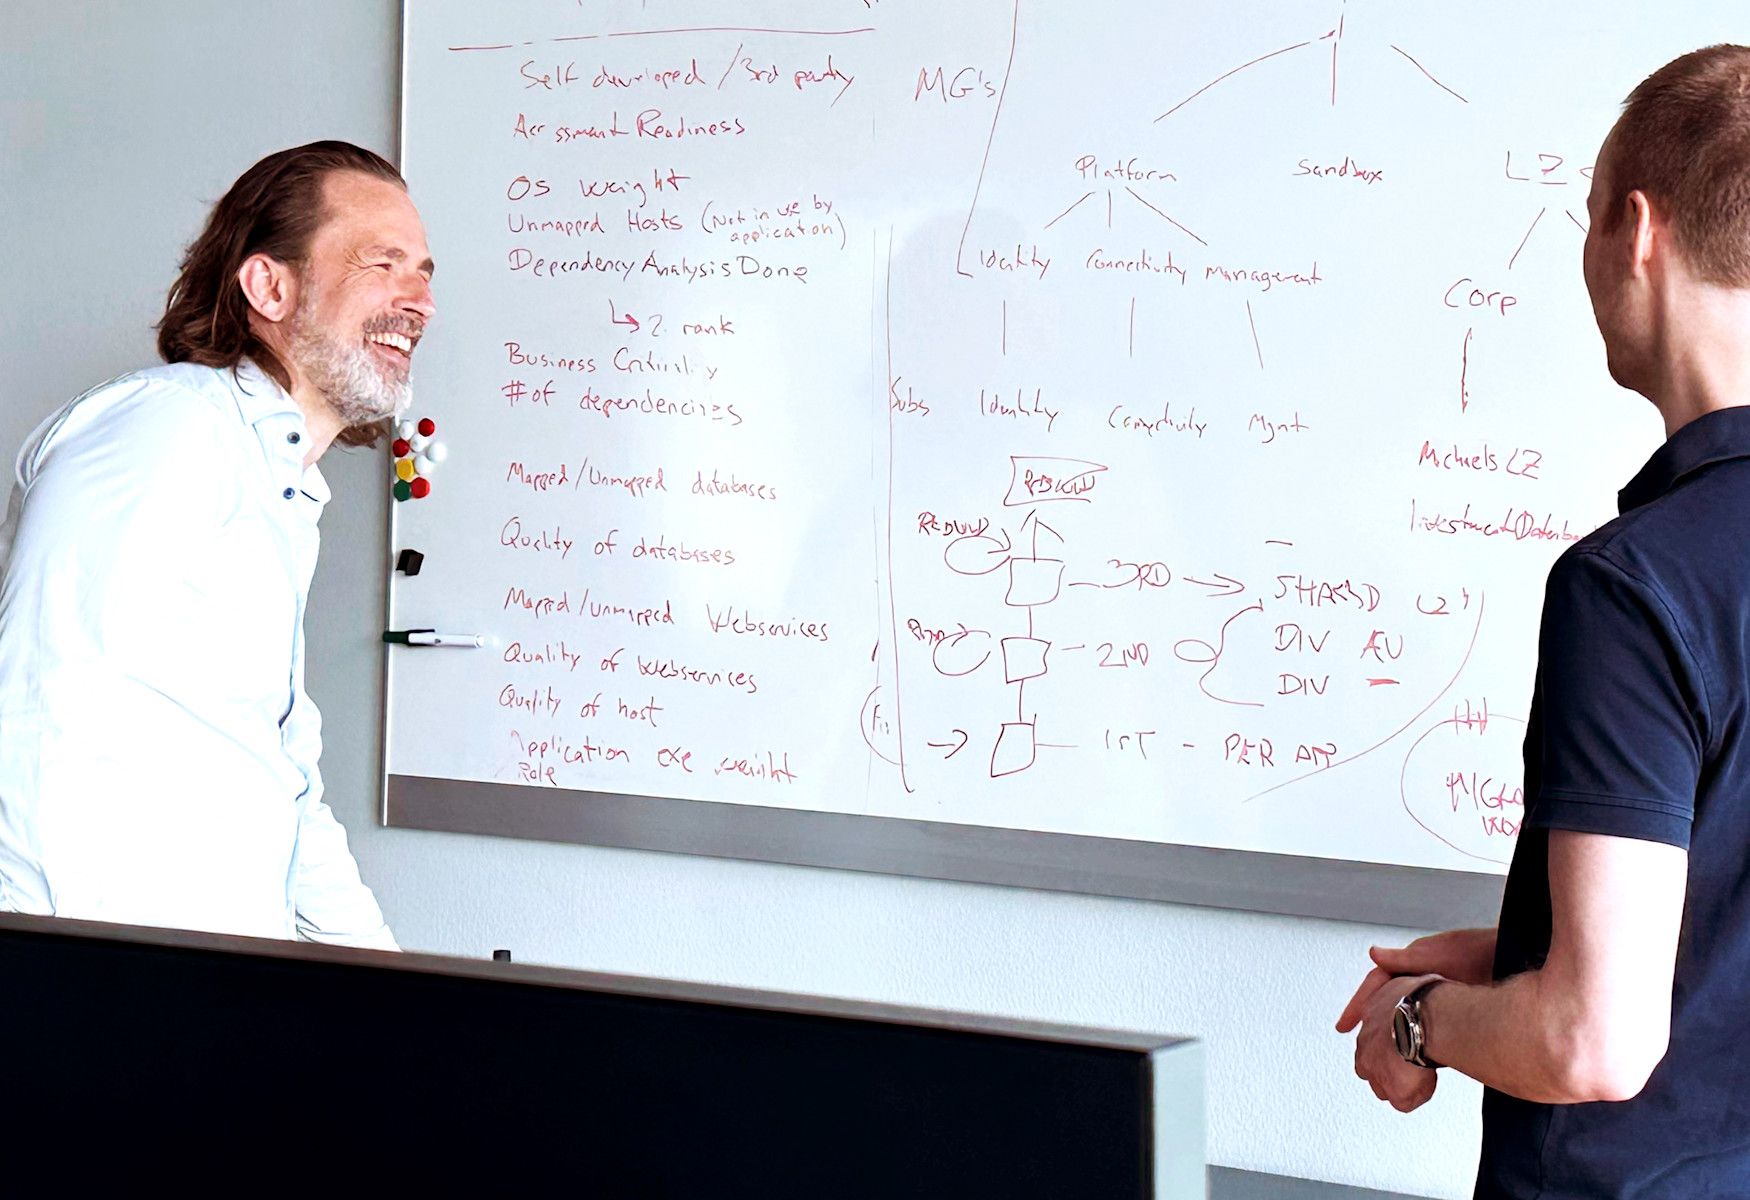 Self developed / 3rd party
Assessment Readiness
OS weight
Unmapped Hosts (Not in use by
application)
Dependency Analysis Done
2. rank
Business Criticality
# of dependencies
Mapped / Unmapped databases
Quality of databases
Mapped / Unmapped Webservices
Quality of Webservices
Quality of host
Application exe weight
Role
MG's
Platform Sandbox LZ
Identity Connectivity Management
Corp
Subs Identity Connectivity Mgmt
Michaels LZ
3RD
2ND DIV
DIV
1ST - PER APP